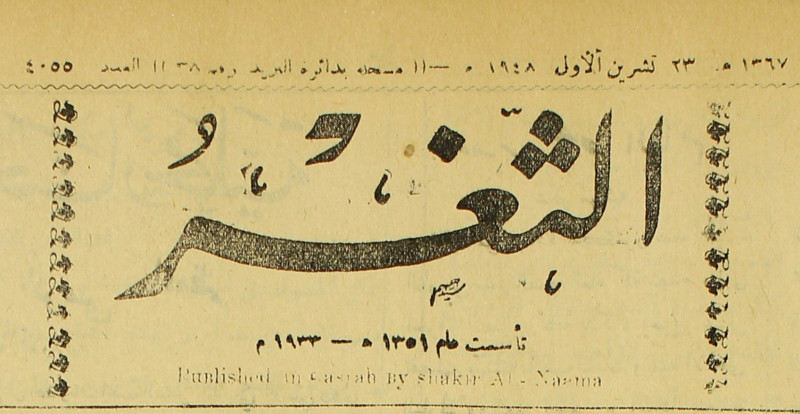 ١٣٦٧ هـ ٢٣ تشرين ألأولى ١٩٤٨ م — (( مسجلة بدائرة البريد رقم ٣٨ )) العدد ٤٠٥٥
الثغر
تأسست عام ١٣٥١ ه — ١٩٣٣ م
Published in Basrah By shakir AL - Naama